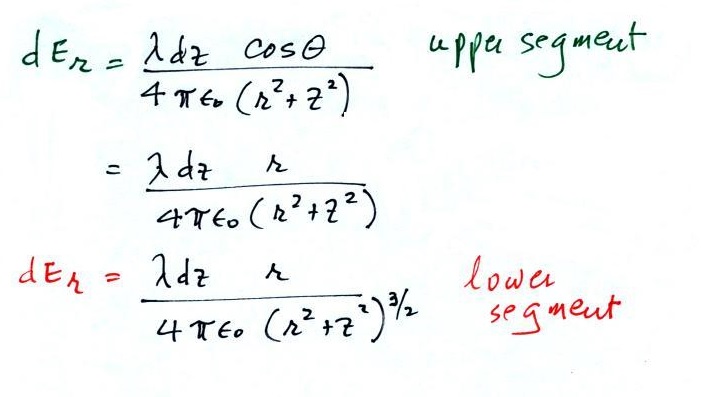 dE_r = λdz cosθ / 4πε₀ (r² + z²) upper segment
= λdz r / 4πε₀ (r² + z²)
dE_r = λdz r / 4πε₀ (r² + z²)^3/2 lower segment